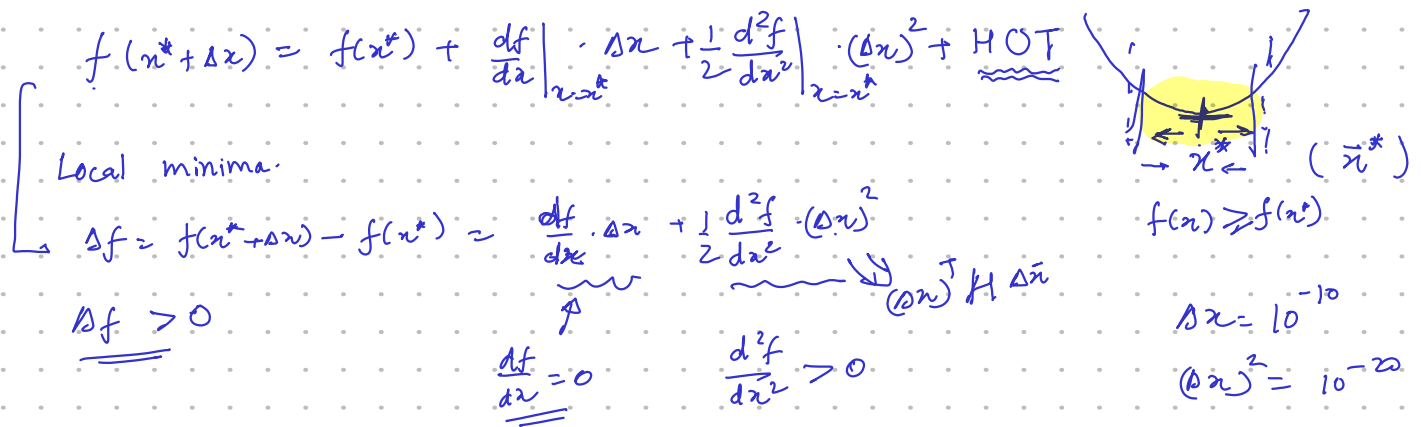 f(x* + Δx) = f(x*) + df/dx|x=x* · Δx + 1/2 d²f/dx²|x=x* · (Δx)² + HOT
x* (x̄*)
Local minima.
f(x) ≥ f(x*)
Δf = f(x*+Δx) - f(x*) = df/dx · Δx + 1/2 d²f/dx² · (Δx)²
(Δx)ᵀ H Δx̄
Δf > 0
Δx = 10⁻¹⁰
df/dx = 0
d²f/dx² > 0
(Δx)² = 10⁻²⁰